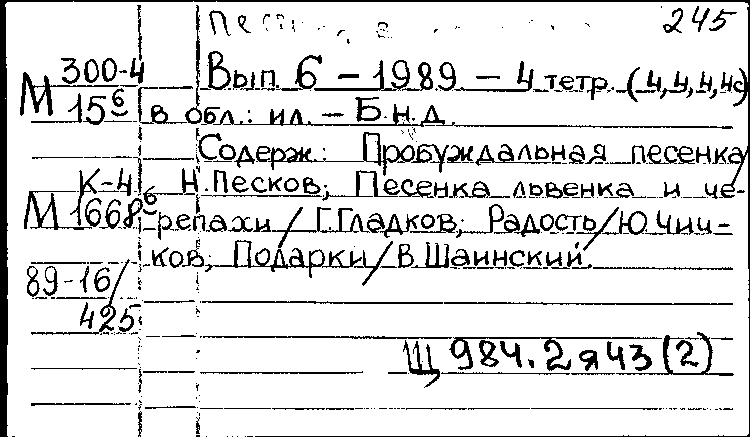 245
300-4 Вып. 6 – 1989 – 4 тетр. (4,4,4,4с)
М 15б в обл.: ил. – Б.н.д.
Содерж.: Пробуждальная песенка/
К-4 Н.Песков; Песенка львенка и че-
М 1668б репахи/Г.Гладков; Радость/Ю.Чич-
ков; Подарки/В.Шаинский.
89-16/
425
Щ 984.2я43(2)